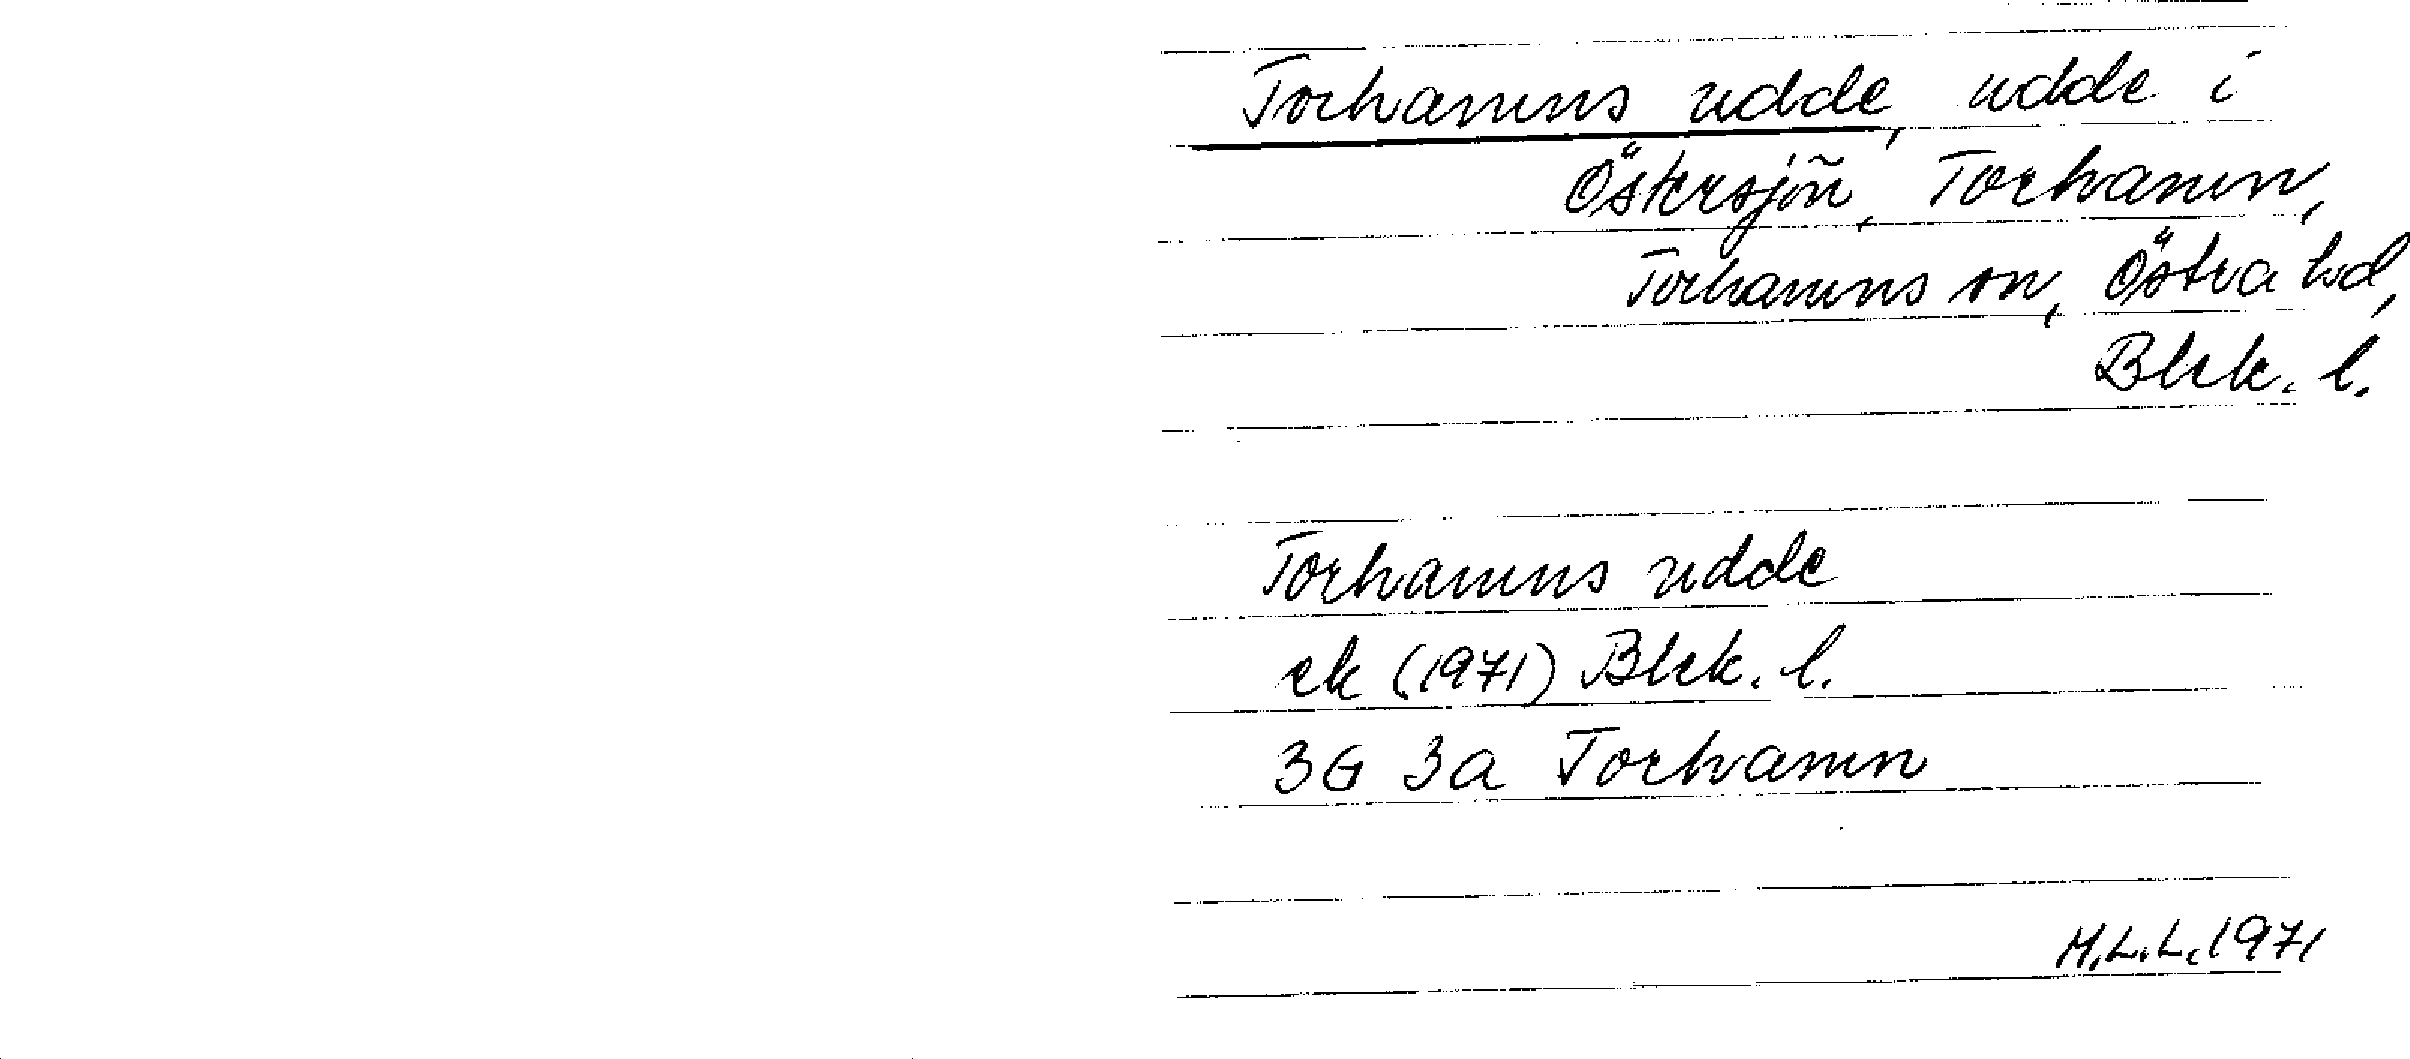 Torhamns udde, udde i
Östersjön, Torhamn,
Torhamns sn, Östra hd,
Blek. l.
Torhamns udde
ek (1971) Blek. l.
3G 3a Torhamn
M.L.L. 1971